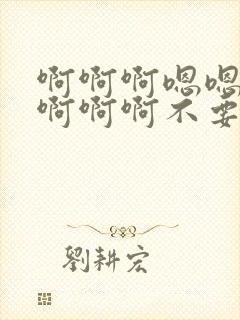 啊啊啊嗯嗯
啊啊啊不要
劉耕宏